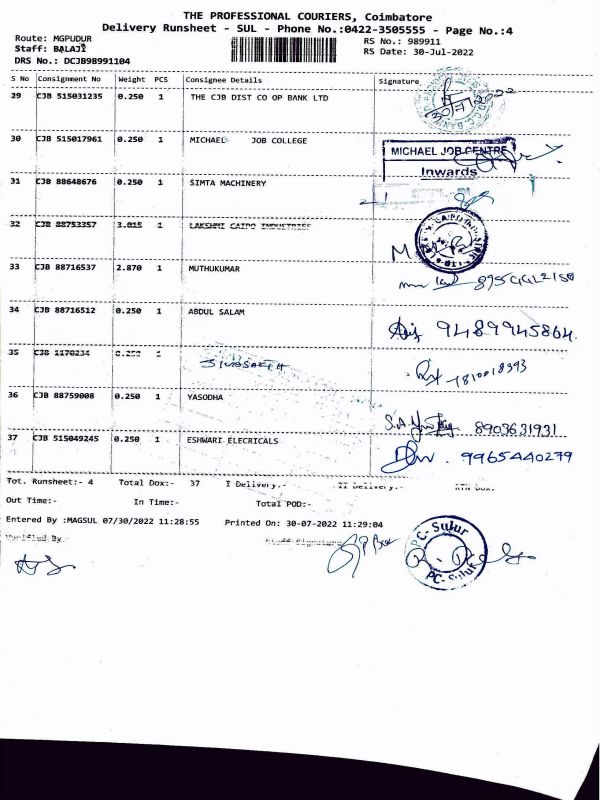 THE PROFESSIONAL COURIERS, Coimbatore
Delivery Runsheet - SUL - Phone No.:0422-3505555 - Page No.:4
Route: MGPUDUR
RS No.: 989911
Staff: BALAJI
RS Date: 30-Jul-2022
DRS No.: DCJB98991104
S No Consignment No Weight PCS Consignee Details Signature
29 CJB 515031235 0.250 1 THE CJB DIST CO OP BANK LTD
30/7/2022
30 CJB 515017961 0.250 1 MICHAEL JOB COLLEGE
MICHAEL JOB CENTRE
Inwards
31 CJB 88648676 0.250 1 SIMTA MACHINERY
32 CJB 88753357 3.015 1 LAKSHMI CAIPO INDUSTRIES
33 CJB 88716537 2.870 1 MUTHUKUMAR
34 CJB 88716512 0.250 1 ABDUL SALAM
9489945864.
35 CJB 1170234 0.250 1 SIVASAKTH
36 CJB 88759008 0.250 1 YASODHA
8903631931
37 CJB 515049245 0.250 1 ESHWARI ELECRICALS
9965440279
Tot. Runsheet:- 4 Total Dox:- 37 I Delivery:- II Delivery:- RTN Dox:
Out Time:- In Time:- Total POD:-
Entered By :MAGSUL 07/30/2022 11:28:55 Printed On: 30-07-2022 11:29:04
Verified By
PC-Sulur
PC-Sulur